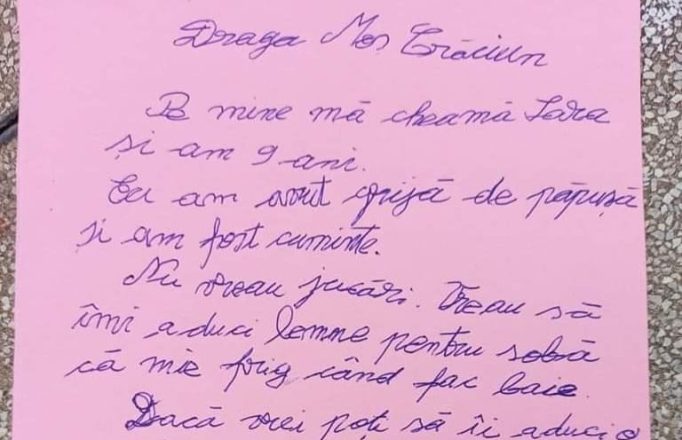 Draga Mos Crăciun
Pe mine mă cheamă Sara
și am 9 ani.
Eu am avut grijă de păpușă
și am fost cuminte.
Nu vreau jucări. Vreau să
îmi aduci lemne pentru sobă
că mie frig când fac baie.
Dacă vrei poți să îi aduci